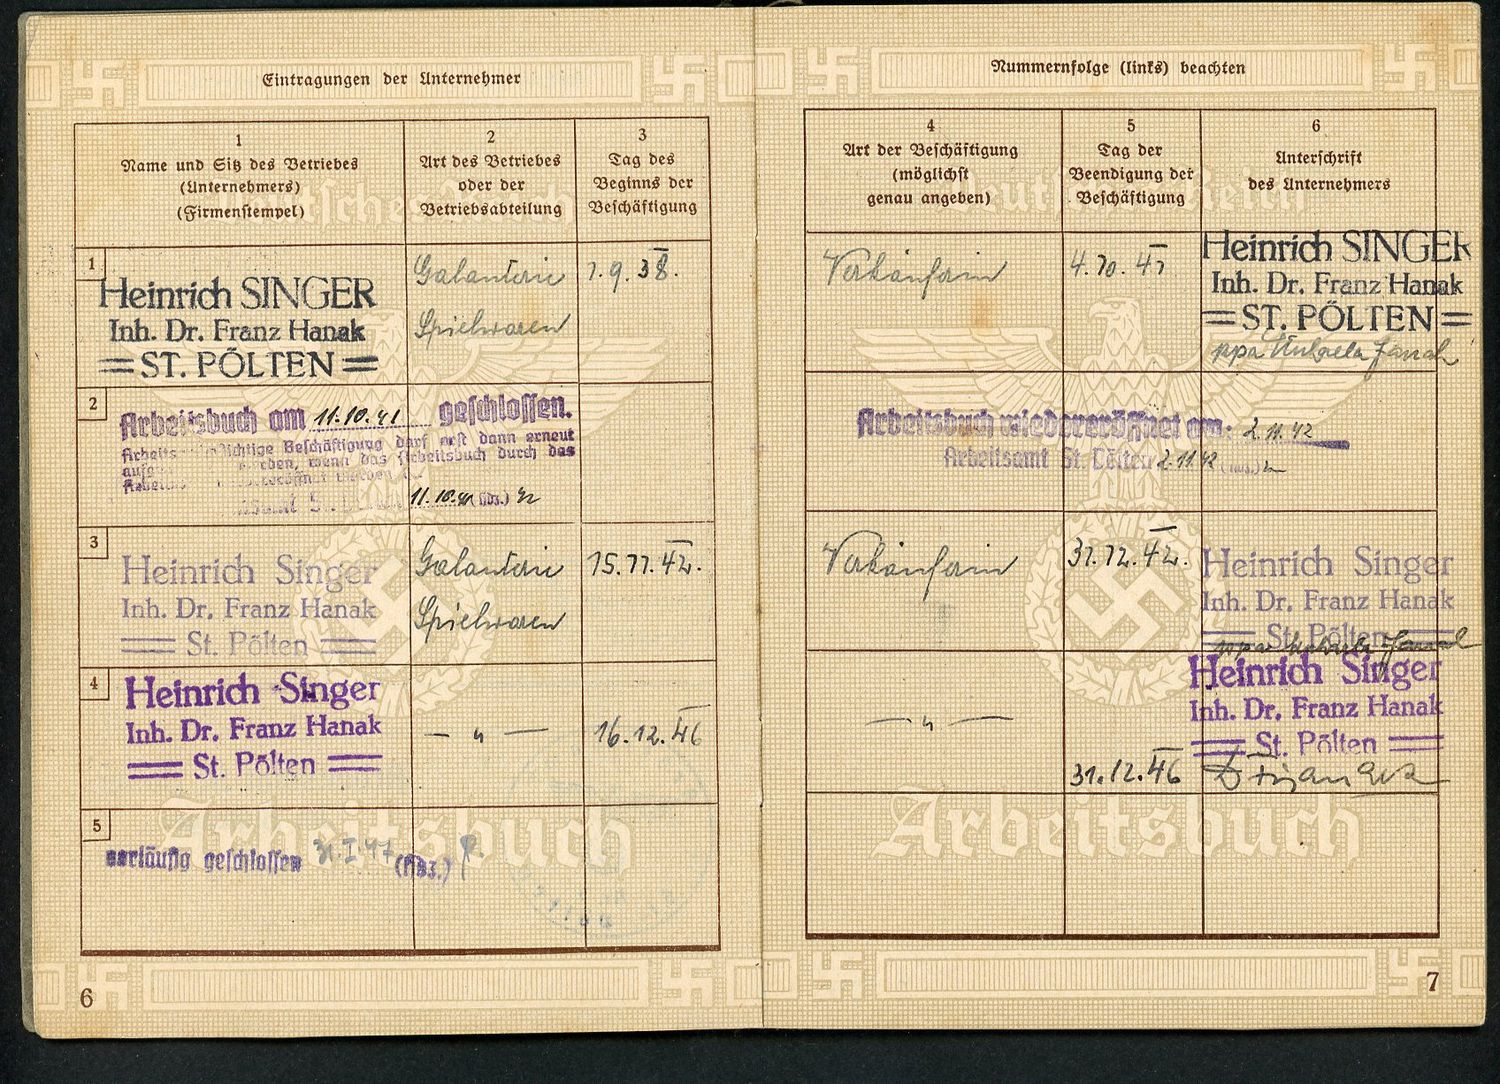 Eintragungen der Unternehmer
1
Name und Sitz des Betriebes
(Unternehmers)
(Firmenstempel)
2
Art des Betriebes
oder der
Betriebsabteilung
3
Tag des
Beginns der
Beschäftigung
1
Heinrich SINGER
Inh. Dr. Franz Hanak
ST. PÖLTEN
Galanterie
Spielwaren
1.9.38.
2
Arbeitsbuch am 11.10.41 geschlossen.
Beschäftigung darf erst dann erneut
werden, wenn das Arbeitsbuch durch das
11.10.41 (Hdz.)
3
Heinrich Singer
Inh. Dr. Franz Hanak
St. Pölten
Galanterie
Spielwaren
15.11.42.
4
Heinrich Singer
Inh. Dr. Franz Hanak
St. Pölten
— " —
16.12.46
5
vorläufig geschlossen 31.I.47 (Hdz.)
Arbeitsbuch
6
Nummernfolge (links) beachten
4
Art der Beschäftigung
(möglichst
genau angeben)
5
Tag der
Beendigung der
Beschäftigung
6
Unterschrift
des Unternehmers
Verkäuferin
4.10.41
Heinrich SINGER
Inh. Dr. Franz Hanak
ST. PÖLTEN
ppa Hanak
Arbeitsbuch wiedereröffnet am: 2.11.42
Arbeitsamt St. Pölten 2.11.42 (Hdz.)
Verkäuferin
31.12.42.
Heinrich Singer
Inh. Dr. Franz Hanak
St. Pölten
ppa Hanak
— " —
31.12.46
Heinrich Singer
Inh. Dr. Franz Hanak
St. Pölten
Arbeitsbuch
7